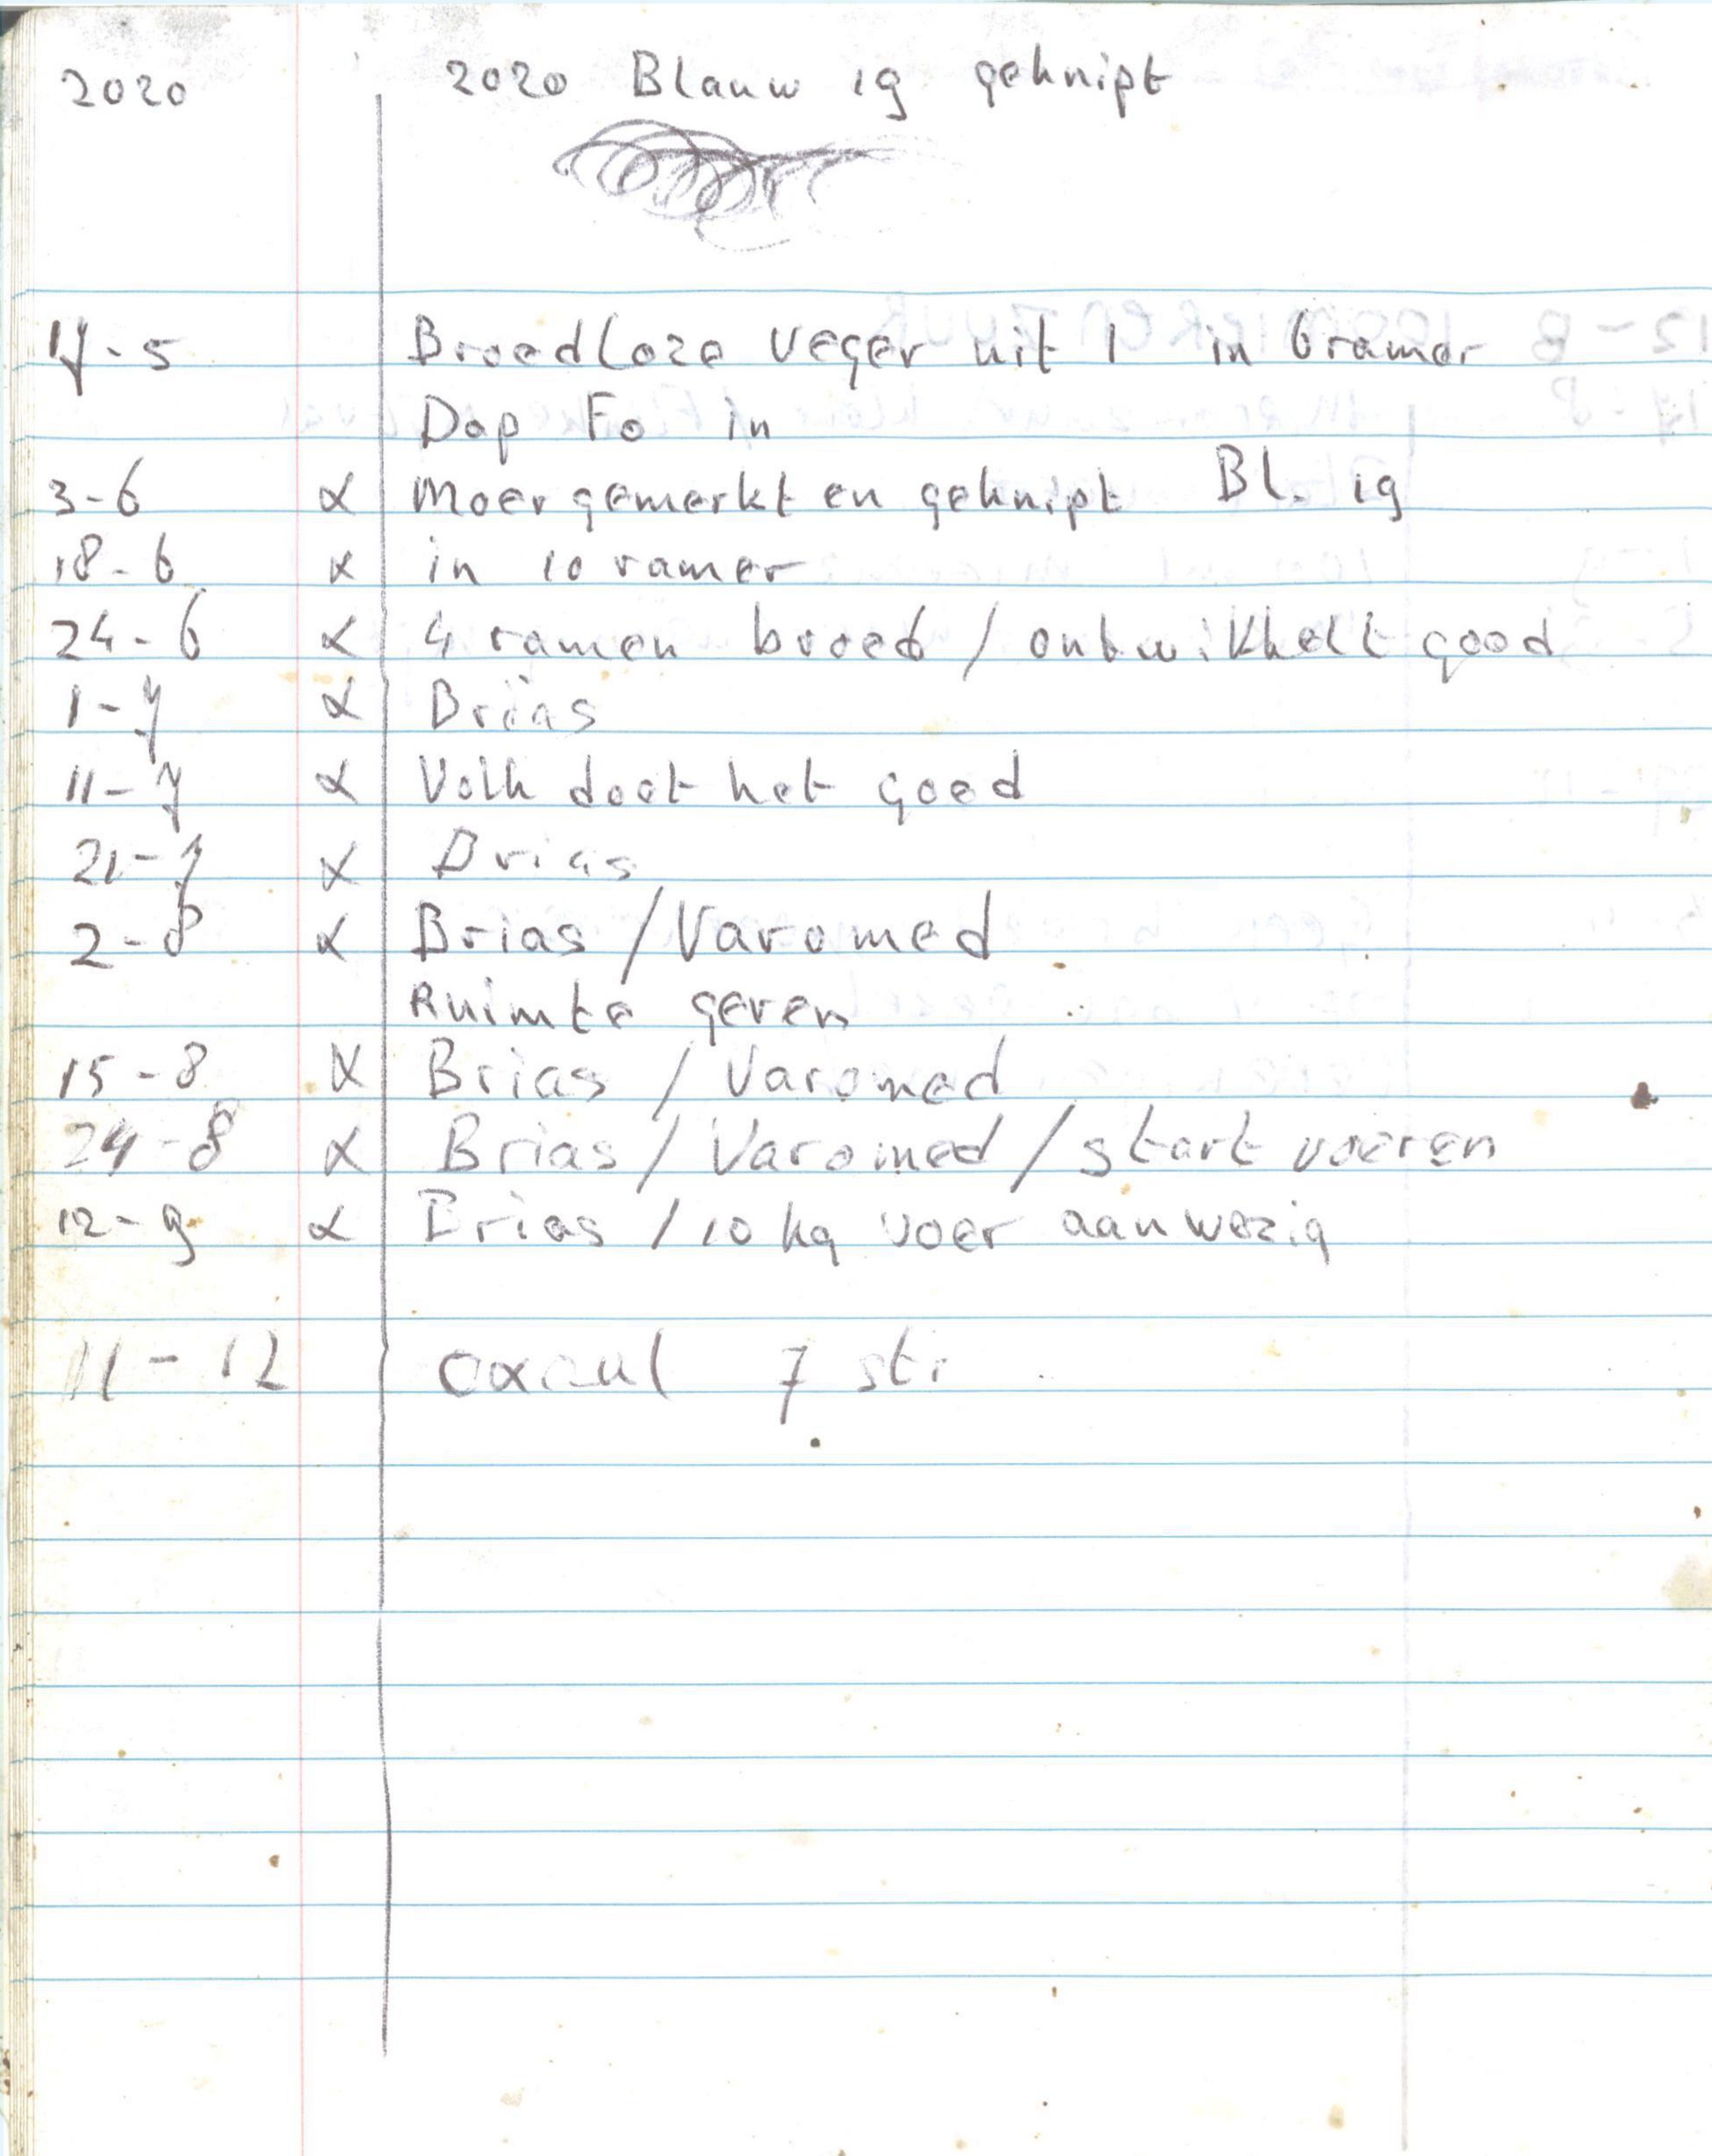 2020 2020 Blauw 19 geknipt
17-5 Broedloze veger uit 1 in 6 ramer
Dop Fo in
3-6 x Moer gemerkt en geknipt Bl. 19
18-6 x in 10 ramer
24-6 x 4 ramen broed / ontwikkelt goed
1-7 x Brias
11-7 x Volk doet het goed
21-7 x Brias
2-8 x Brias / Varomed
Ruimte geven
15-8 x Brias / Varomed
24-8 x Brias / Varomed / start voeren
12-9 x Brias / 10 kg voer aanwezig
11-12 7 str